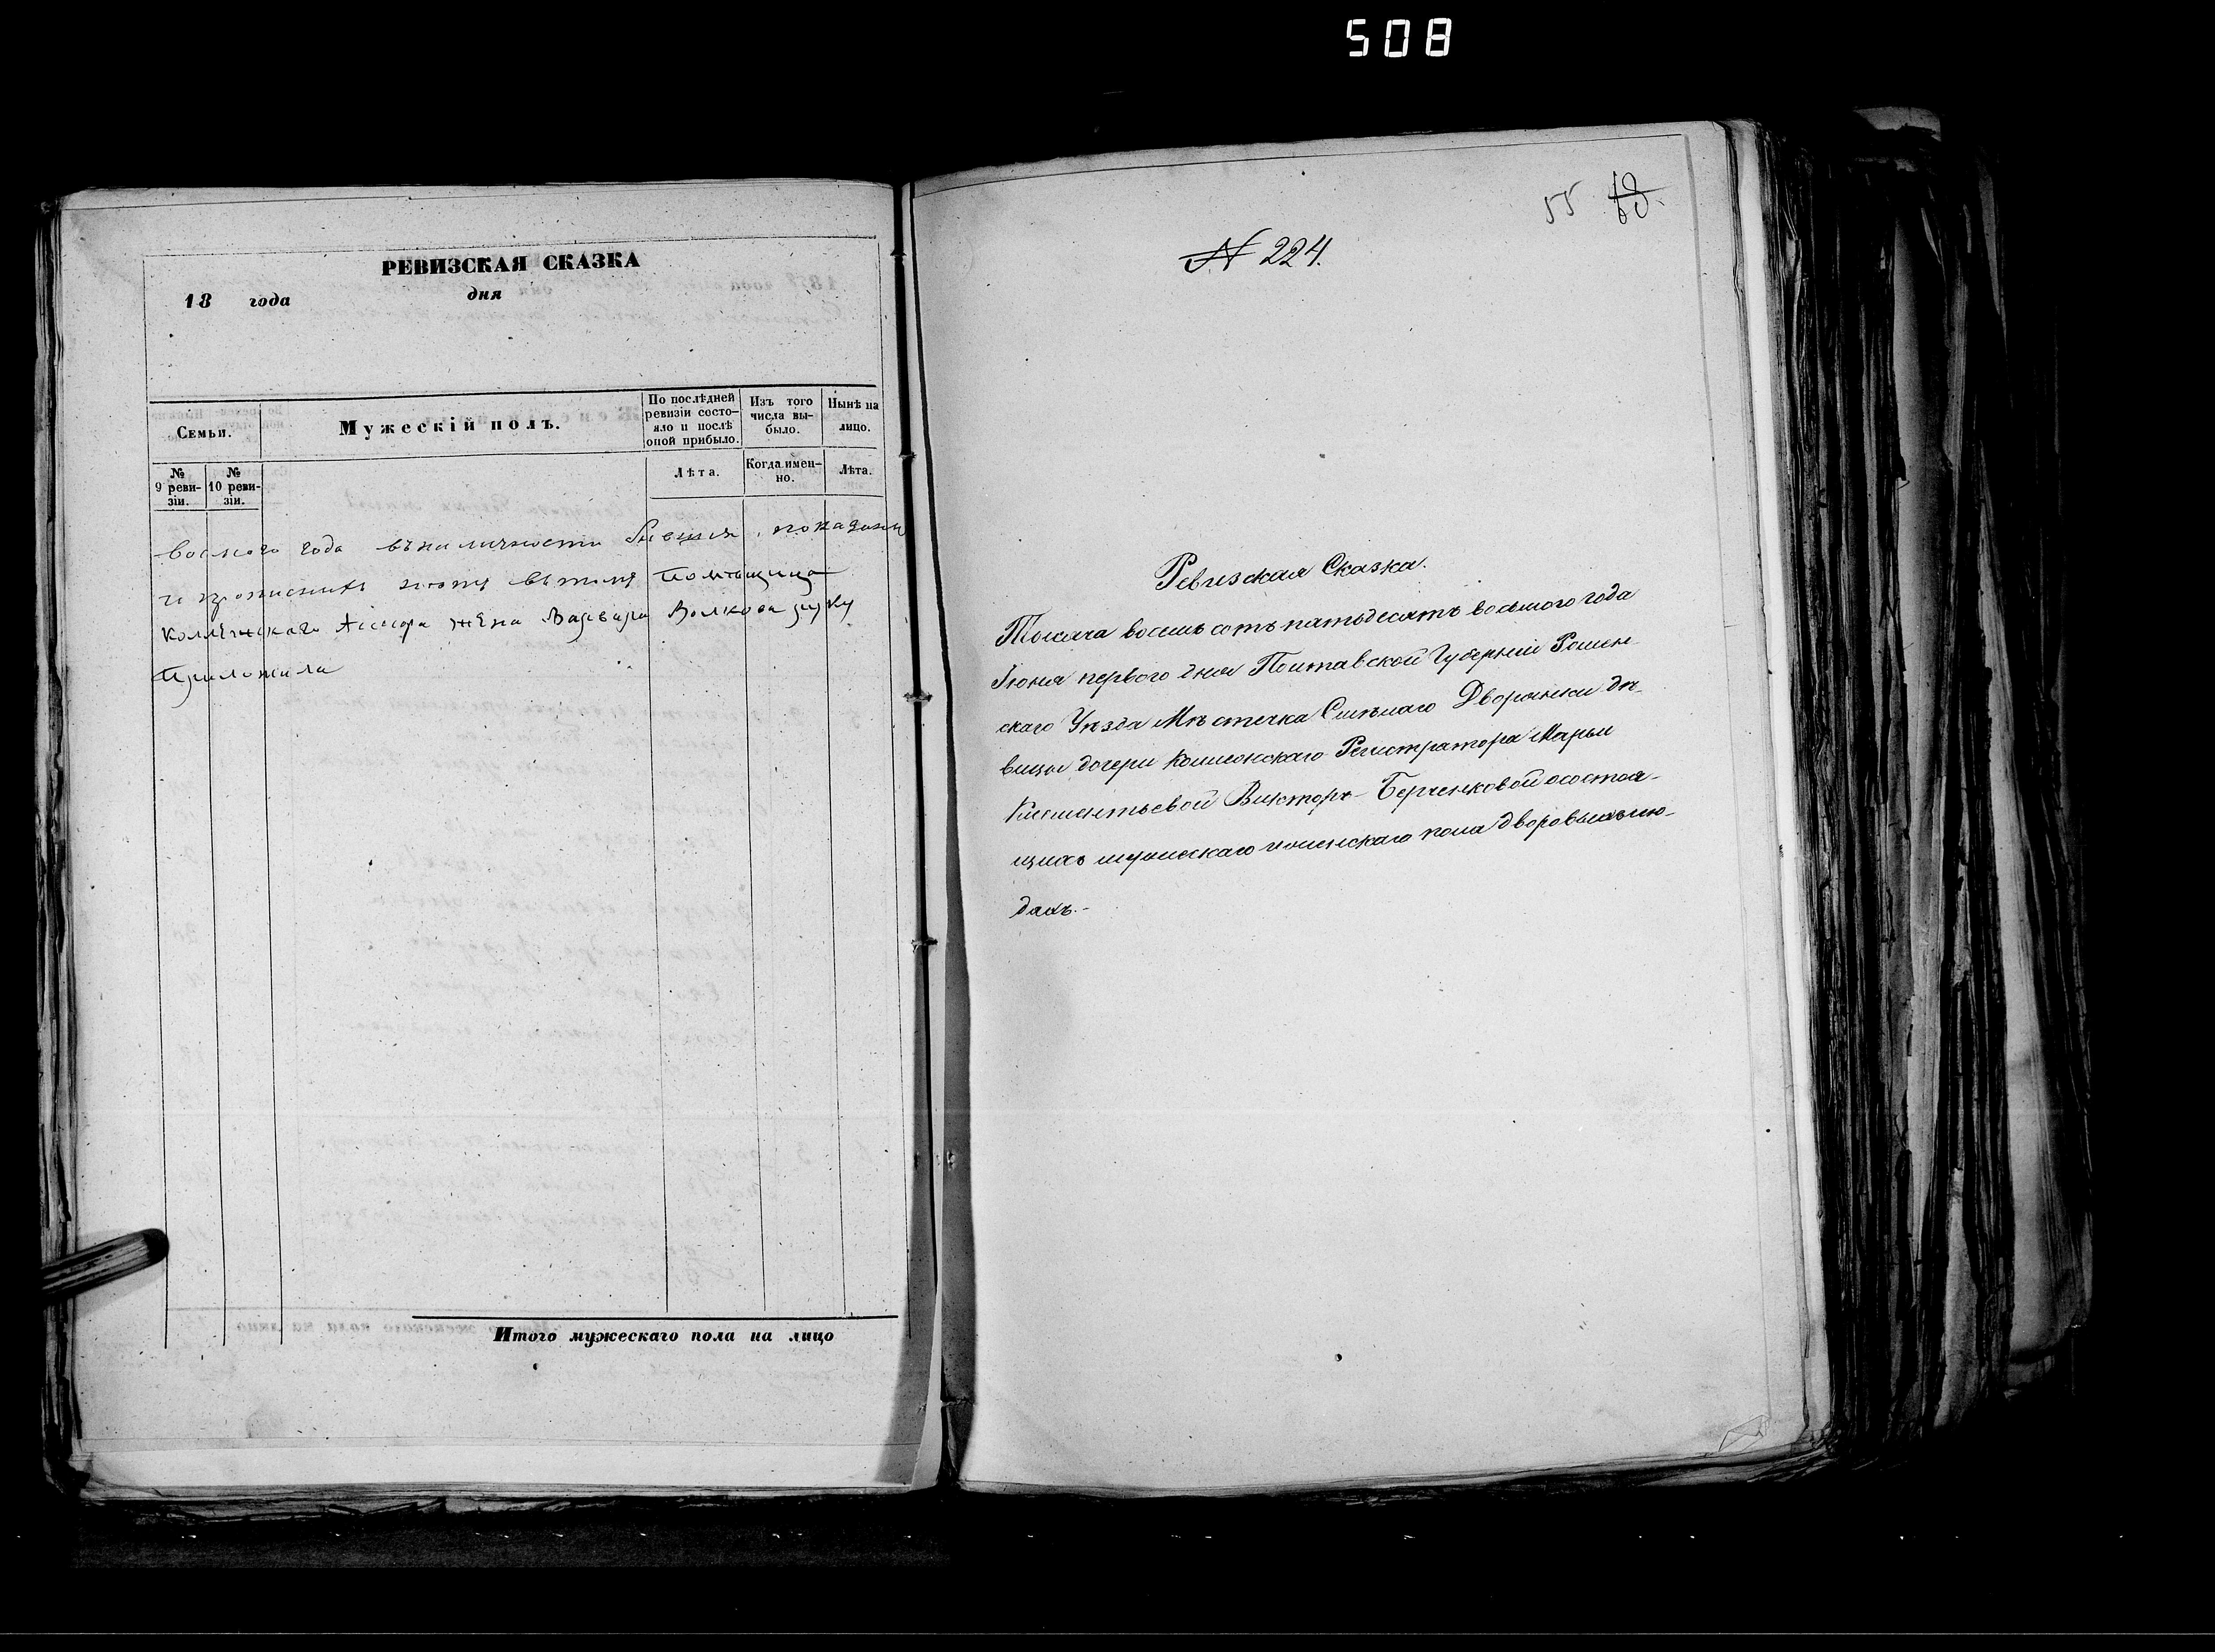 508
РЕВИЗСКАЯ СКАЗКА
18 года дня
Семьи.
Мужескій полъ.
По послѣдней ревизіи состояло и послѣ оной прибыло.
Изъ того числа выбыло.
Нынѣ на лицо.
№ 9 ревизіи.
№ 10 ревизіи.
Лѣта.
Когда именно.
Лѣта.
восмого года въ наличности
и прописныхъ въ томъ Помѣщица
Коллежскаго жена Варвара Волкова руку
приложила
Итого мужескаго пола на лицо
55
№ 224.
Ревизская Сказка.
Тысяча восемь сотъ пятьдесятъ восьмого года
Іюня первого дня Полтавской Губерніи Ромен-
скаго Уѣзда Мѣстечка Смѣлаго Дворянки дѣ-
вицы дочери Колежскаго Регистратора Марьи
Климентьевой Викторъ-Берченковой о состоя-
щихъ мужескаго и женскаго пола дворовыхъ лю-
дяхъ.-